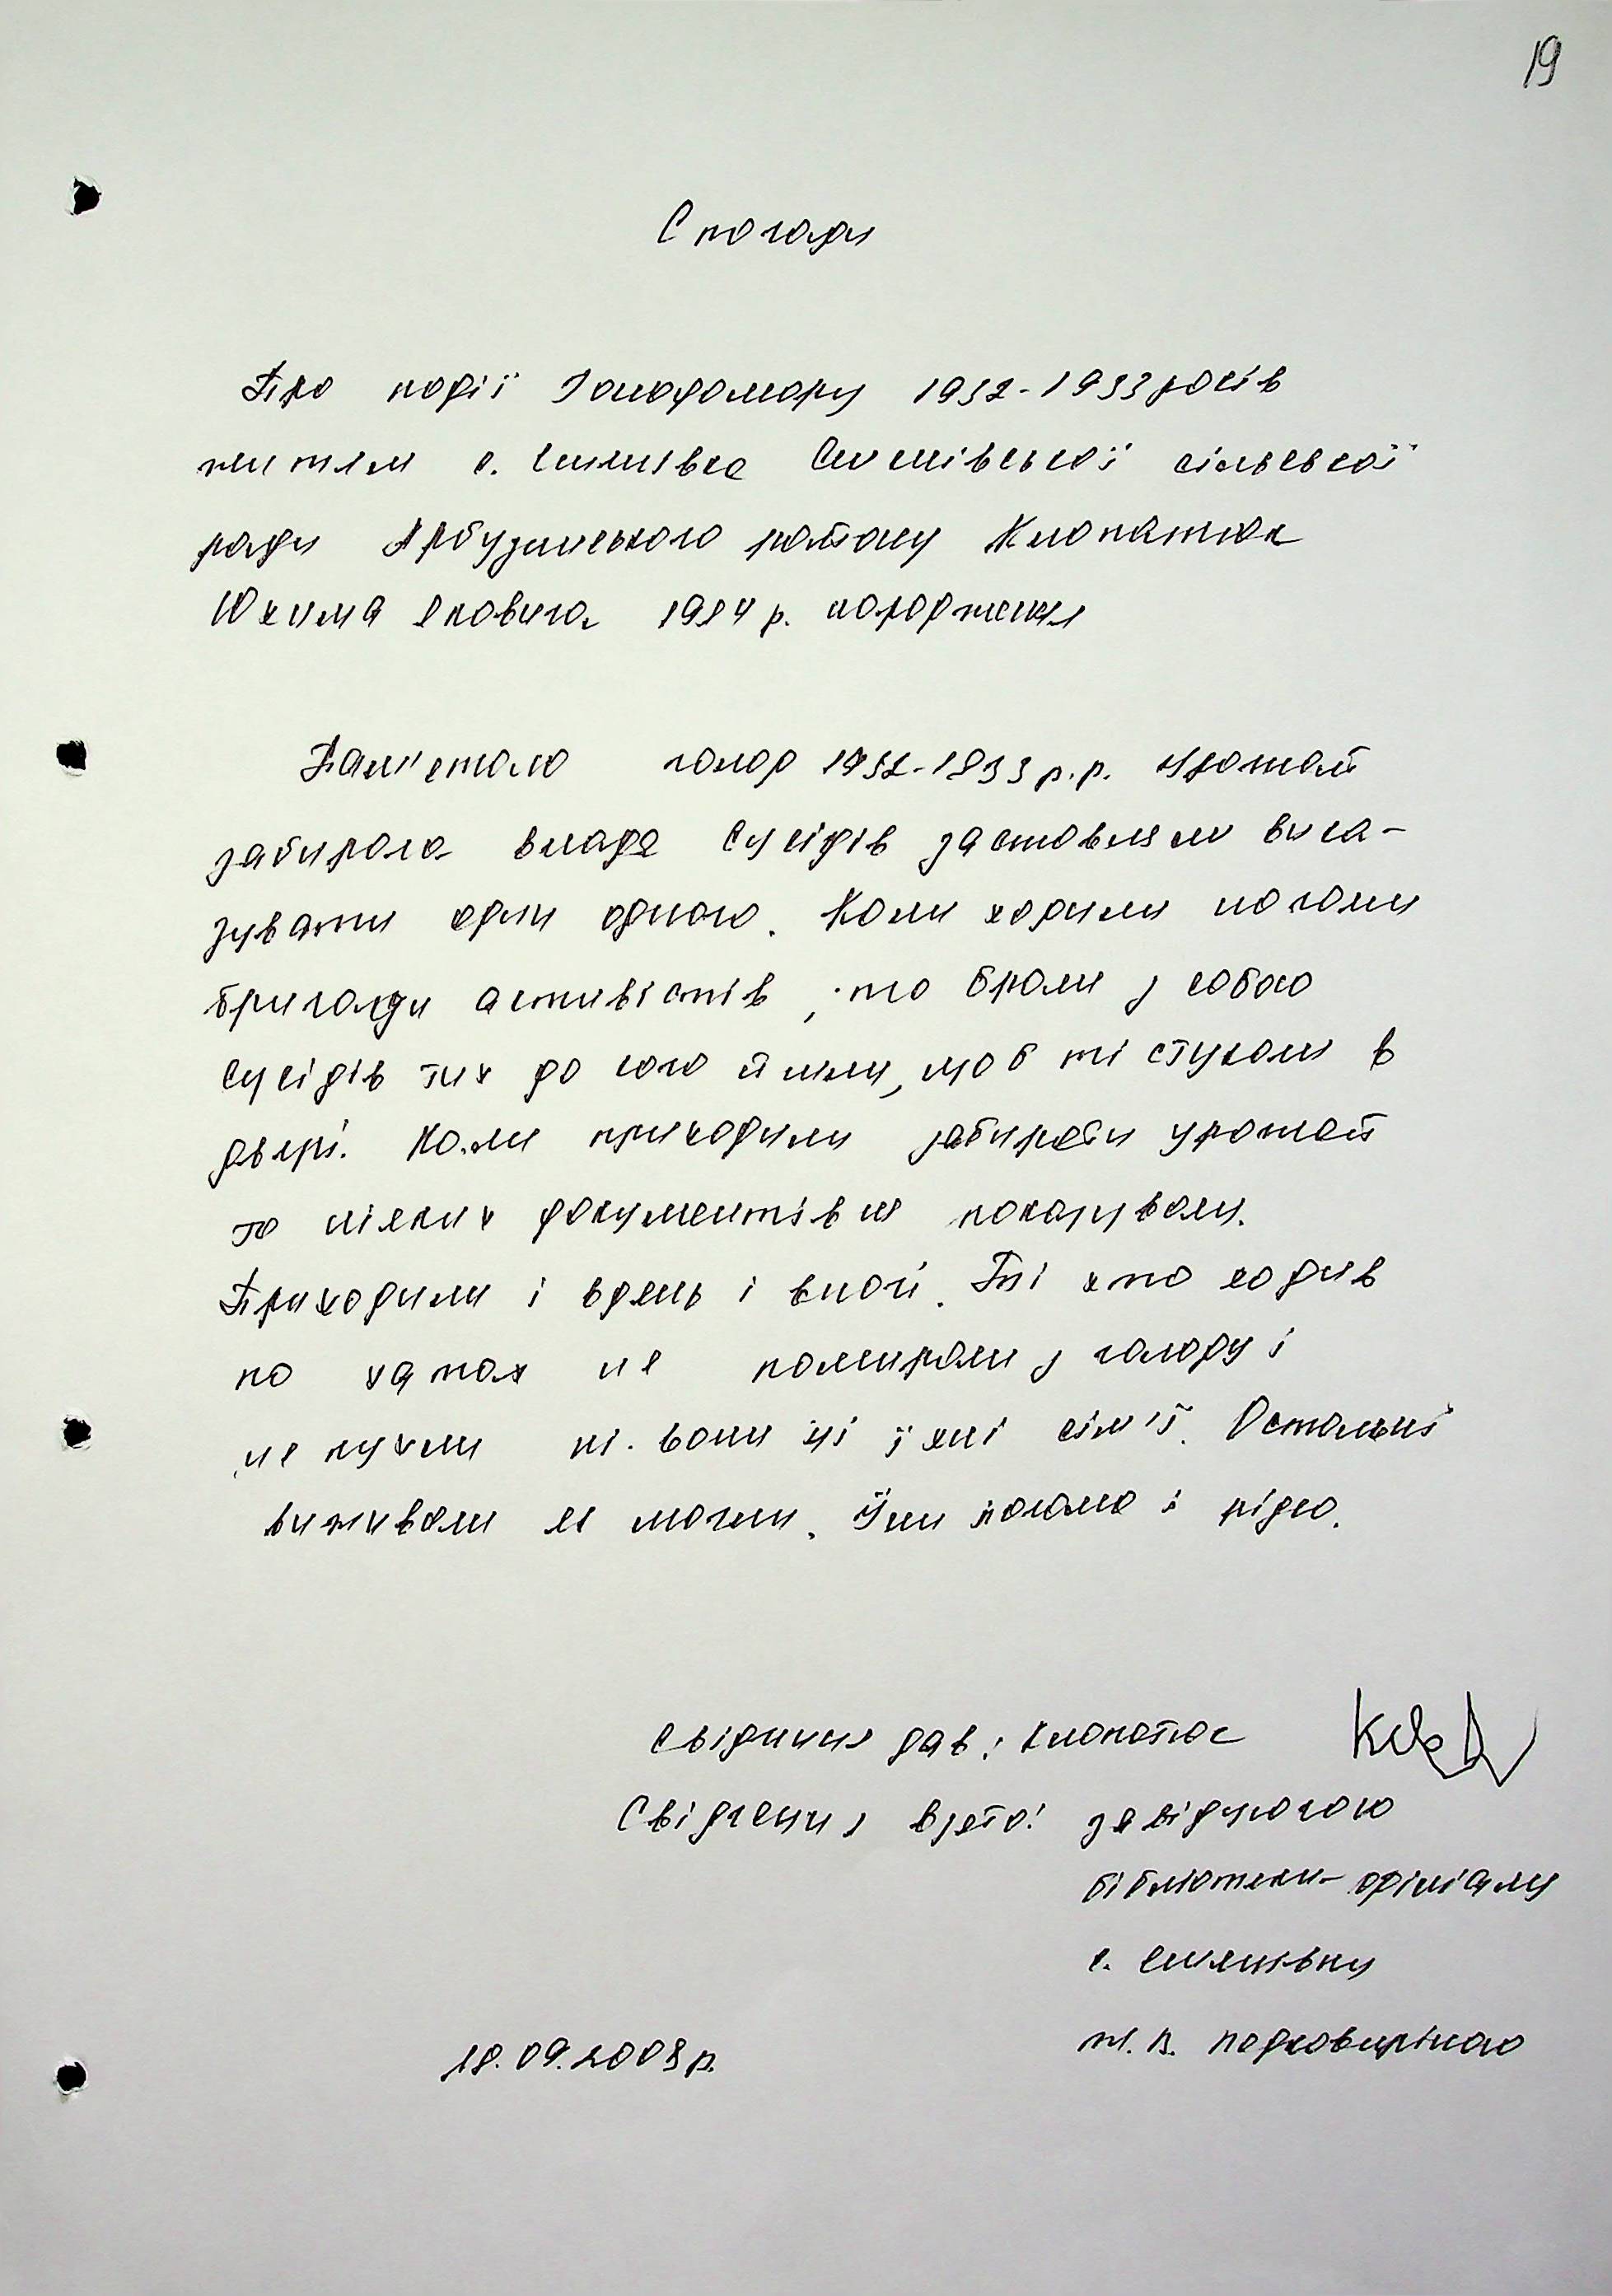 19
Спогади
Про події Голодомору 1932-1933 років
жителя с. Семенівка Семенівської сільської
ради Арбузинського району Клопатюк
Юхима Яковича 1924 р. народження
Пам'ятаю голод 1932-1933 р.р. Урожай
забирала влада Сусідів заставляли вика-
зувати один одного. Коли ходили ногами
бригади активістів, то брали з собою
сусідів тих до кого йшли, щоб ті стукали в
двері. Коли приходили забирати урожай
то ніяких документів не показували.
Приходили і вдень і вночі. Ті хто ходив
по хатах не помирали з голоду і
не пухли ні вони ні їхні сім'ї. Остальні
виживали як могли. Їли погано і рідко.
Свідчення дав: Клопатюк
Свідчення взято: завідуючою
бібліотеки-філіалу
с. Семенівки
18.09.2008 р.